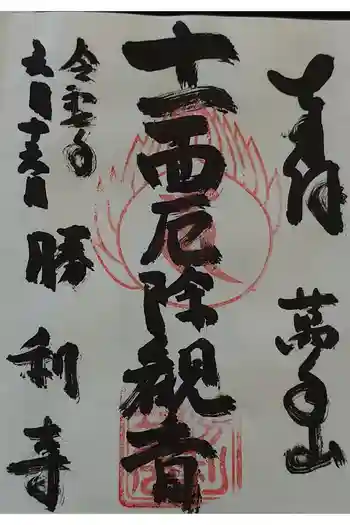 奉拝
萬年山
十一面厄除観音
令和七年
六月十五日
勝利寺